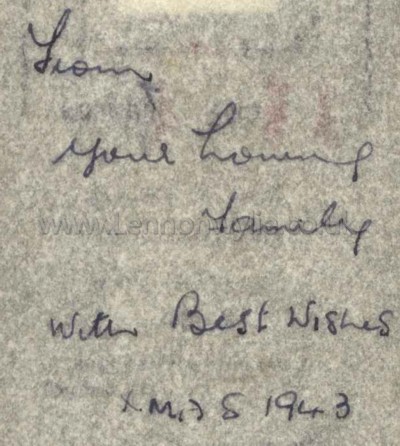 From
your Loving
Family
With Best Wishes
XMAS 1943